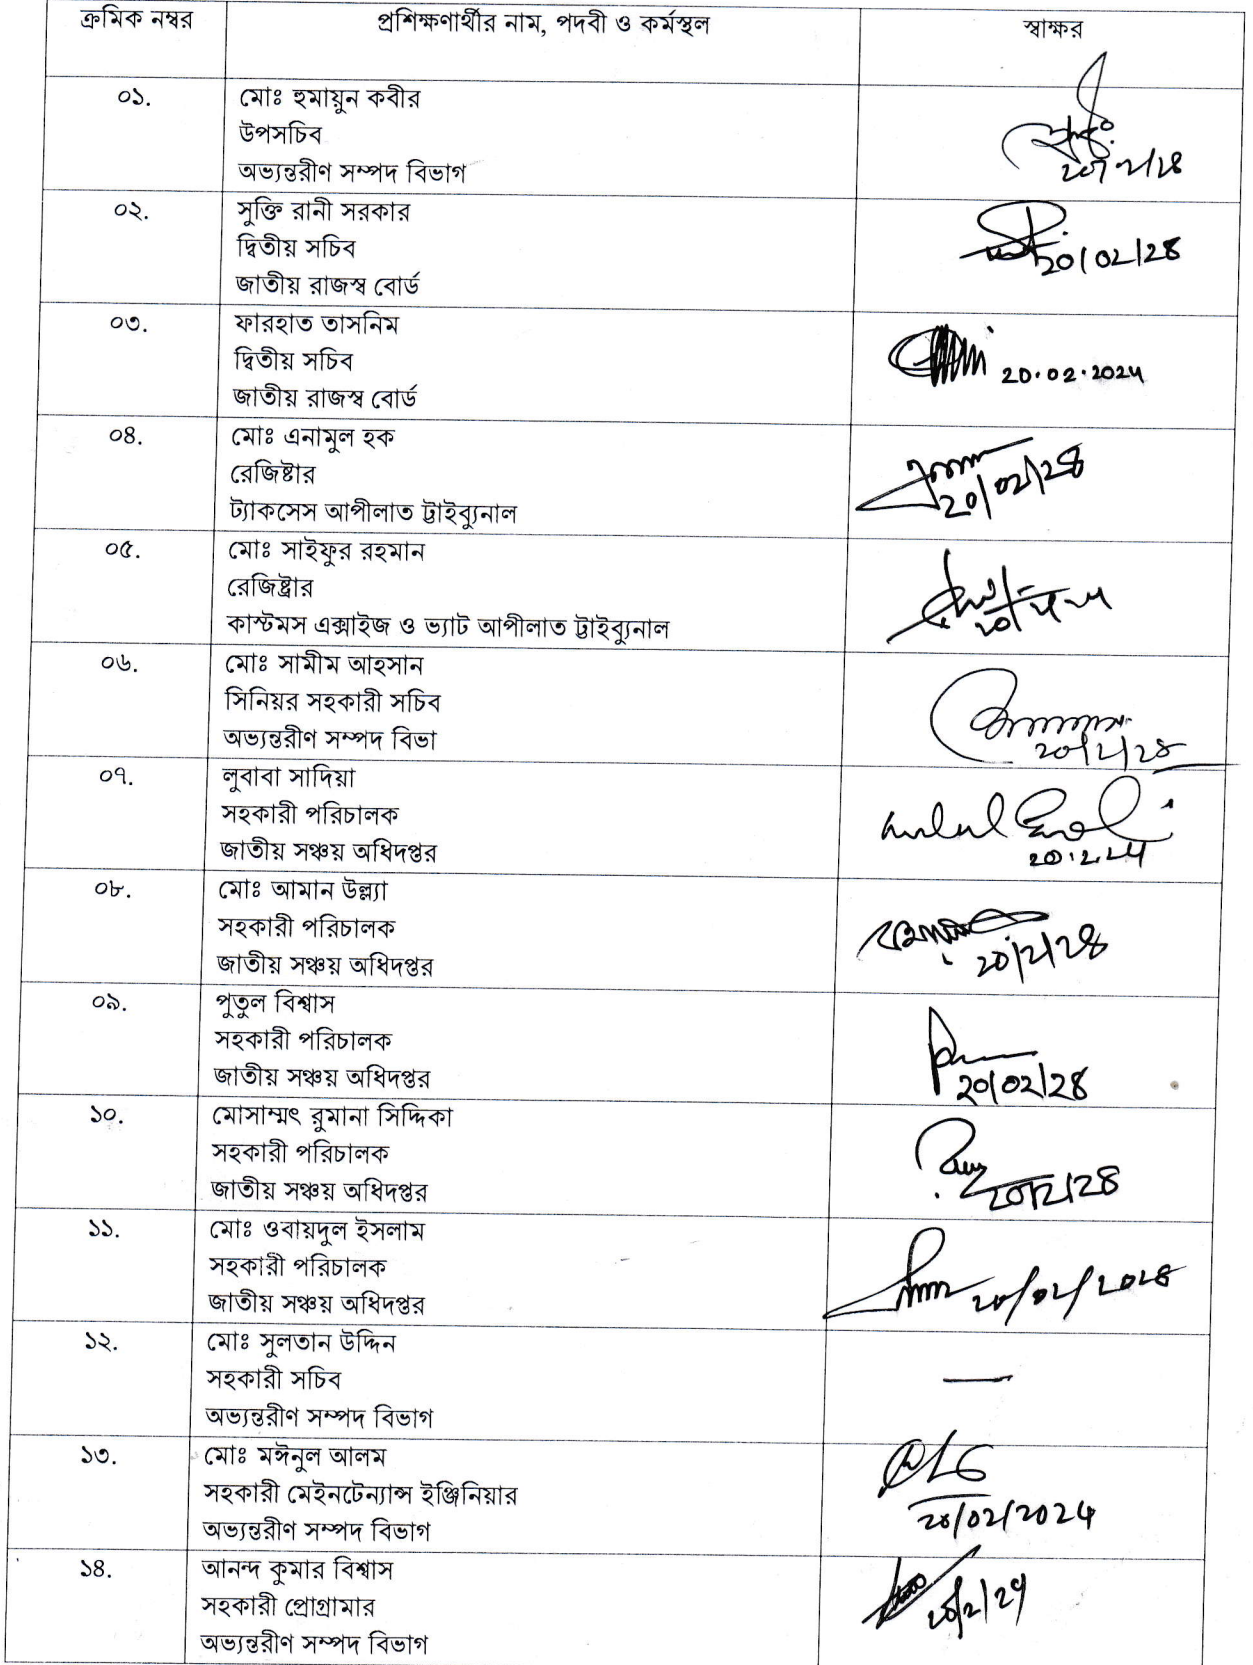 ক্রমিক নম্বর প্রশিক্ষণার্থীর নাম, পদবী ও কর্মস্থল স্বাক্ষর
০১. মোঃ হুমায়ুন কবীর
উপসচিব
অভ্যন্তরীণ সম্পদ বিভাগ
০২. সুক্তি রানী সরকার
দ্বিতীয় সচিব
জাতীয় রাজস্ব বোর্ড
20/02/২৪
০৩. ফারহাত তাসনিম
দ্বিতীয় সচিব
জাতীয় রাজস্ব বোর্ড
20.02.2024
০৪. মোঃ এনামুল হক
রেজিষ্টার
ট্যাকসেস আপীলাত ট্রাইব্যুনাল
20/02/২৪
০৫. মোঃ সাইফুর রহমান
রেজিষ্ট্রার
কাস্টমস এক্সাইজ ও ভ্যাট আপীলাত ট্রাইব্যুনাল
০৬. মোঃ সামীম আহসান
সিনিয়র সহকারী সচিব
অভ্যন্তরীণ সম্পদ বিভা
২০/২/২৪
০৭. লুবাবা সাদিয়া
সহকারী পরিচালক
জাতীয় সঞ্চয় অধিদপ্তর
20.2.24
০৮. মোঃ আমান উল্ল্যা
সহকারী পরিচালক
জাতীয় সঞ্চয় অধিদপ্তর
২০/২/২৪
০৯. পুতুল বিশ্বাস
সহকারী পরিচালক
জাতীয় সঞ্চয় অধিদপ্তর
২০/০২/২৪
১০. মোসাম্মৎ রুমানা সিদ্দিকা
সহকারী পরিচালক
জাতীয় সঞ্চয় অধিদপ্তর
২০/২/২৪
১১. মোঃ ওবায়দুল ইসলাম
সহকারী পরিচালক
জাতীয় সঞ্চয় অধিদপ্তর
২০/০২/২০২৪
১২. মোঃ সুলতান উদ্দিন
সহকারী সচিব
অভ্যন্তরীণ সম্পদ বিভাগ
১৩. মোঃ মঈনুল আলম
সহকারী মেইনটেন্যান্স ইঞ্জিনিয়ার
অভ্যন্তরীণ সম্পদ বিভাগ
20/02/2024
১৪. আনন্দ কুমার বিশ্বাস
সহকারী প্রোগ্রামার
অভ্যন্তরীণ সম্পদ বিভাগ